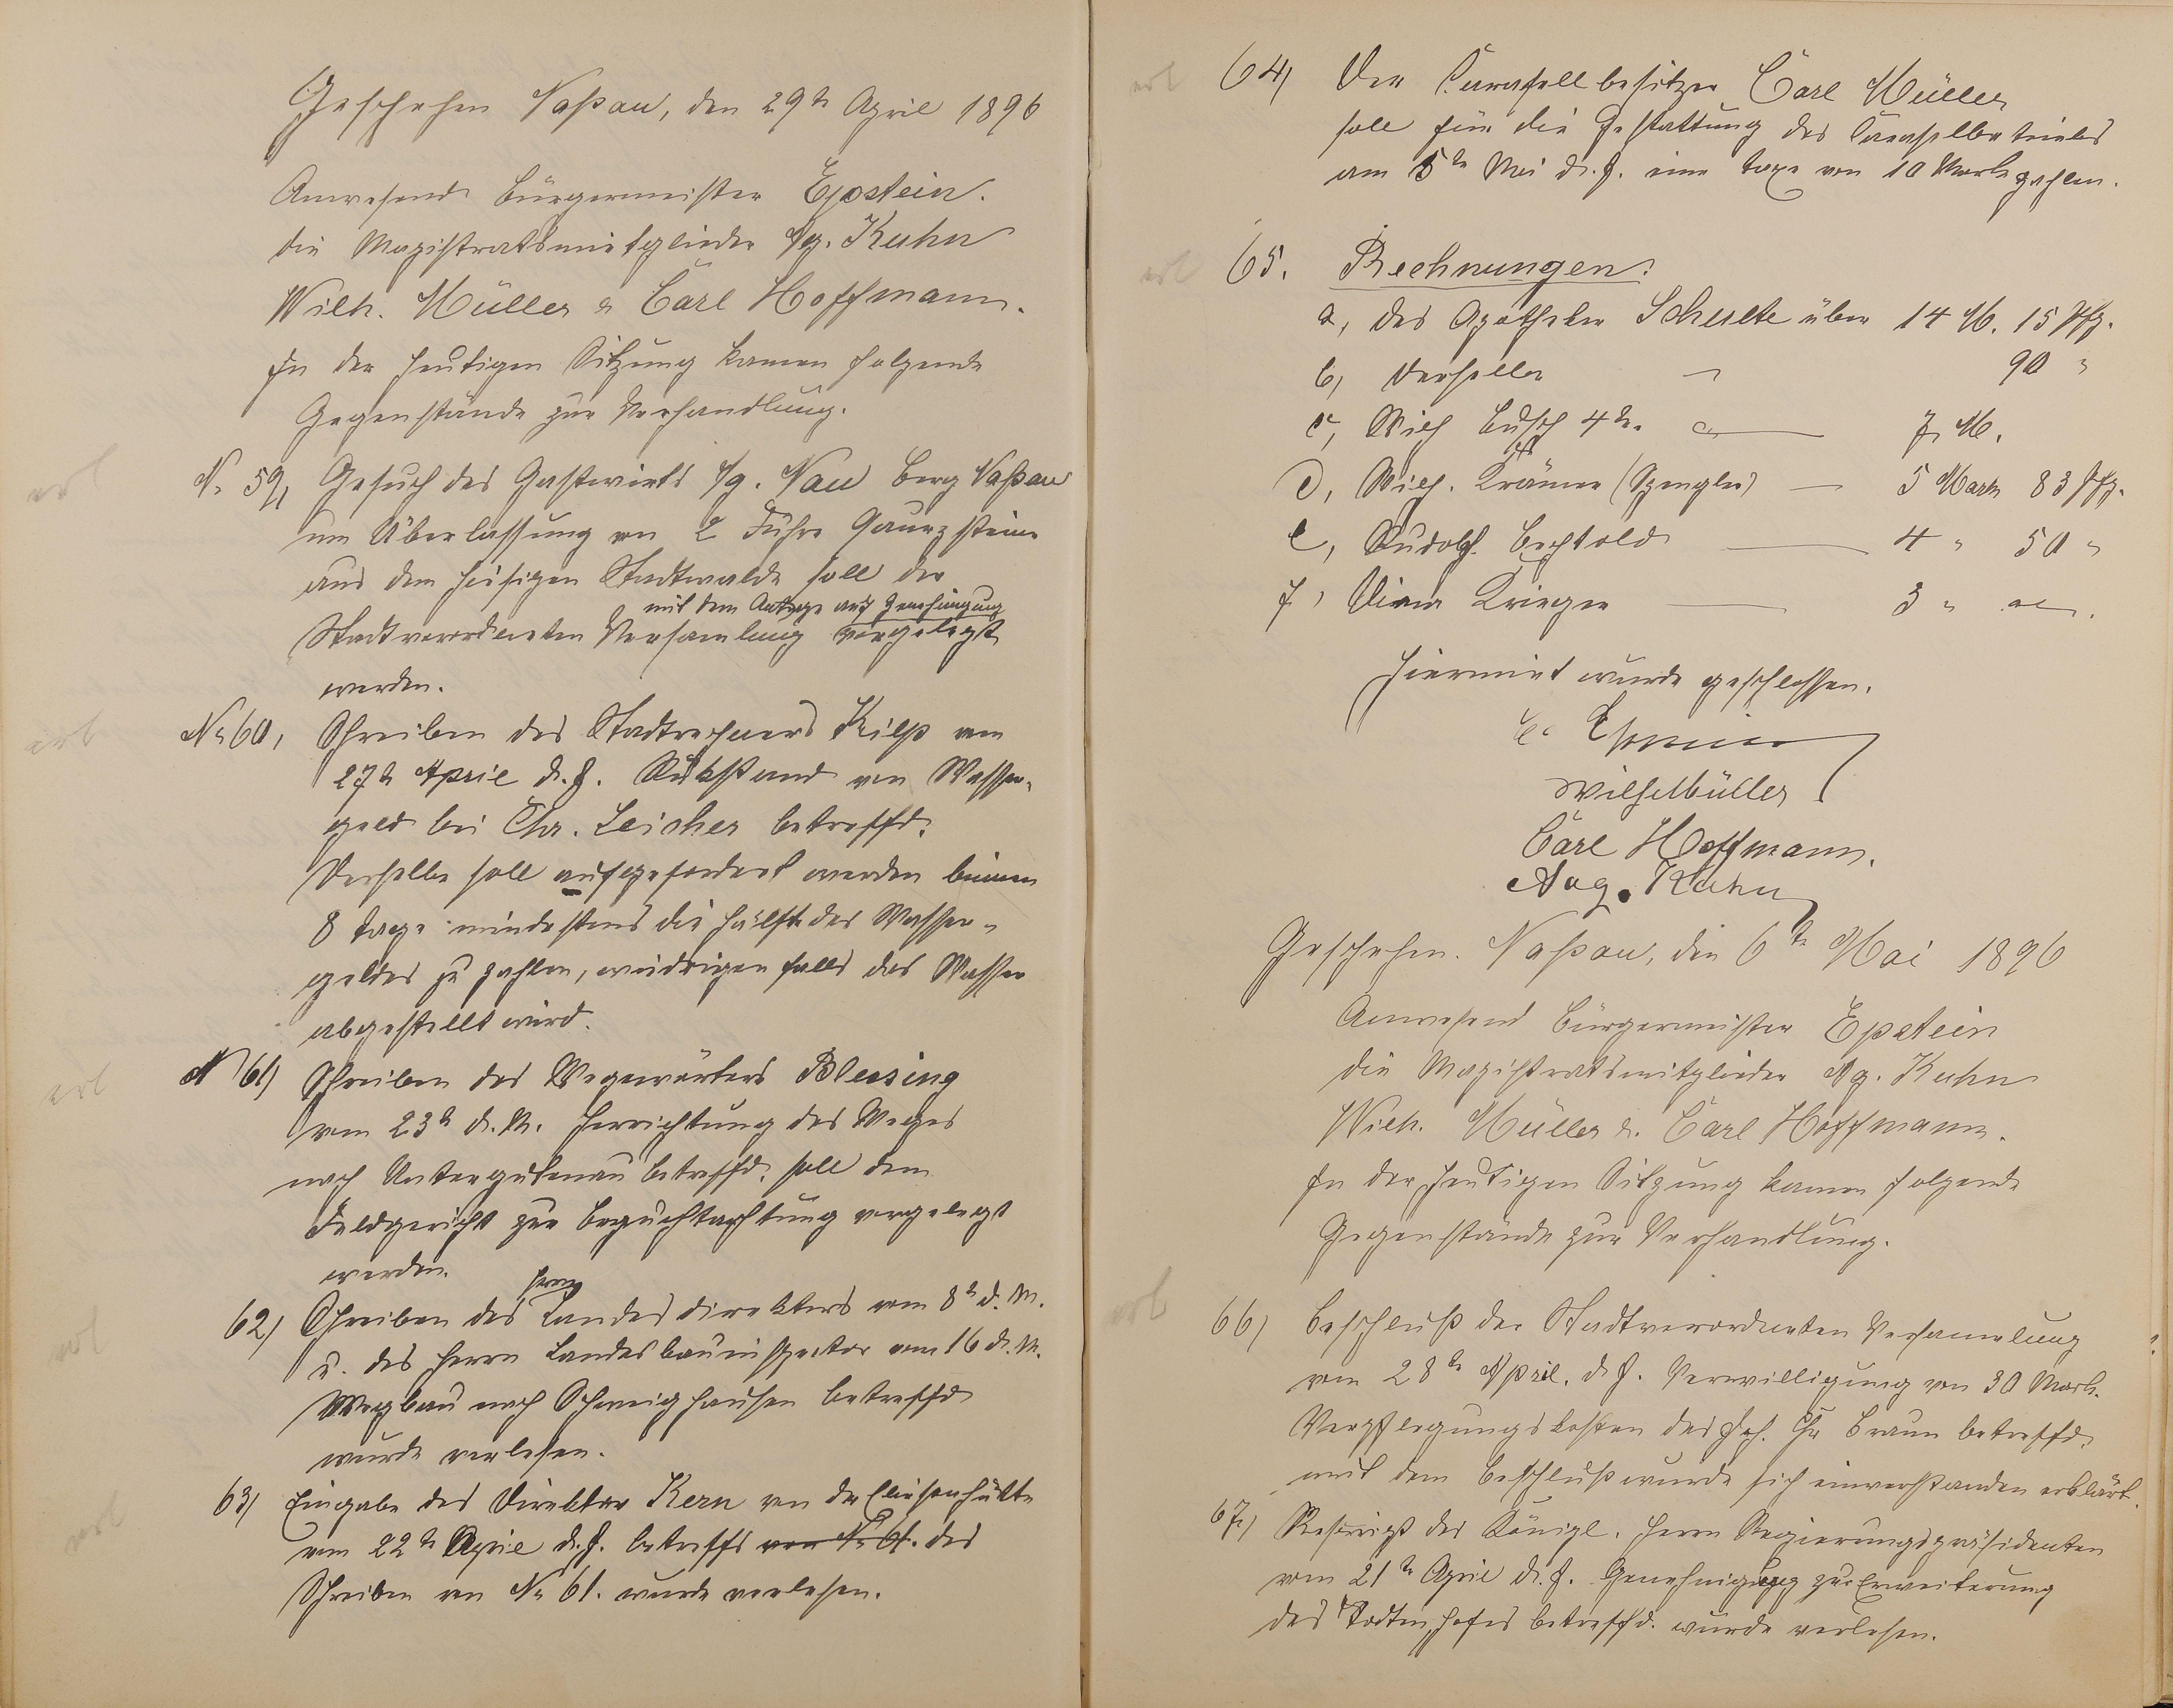 Geschehen Naßau, den 29ten April 1896
Anwesend Bürgermeister Epstein.
die Magistratsmitglieder Ag. Kuhn
Wilh. Müller u Carl Hoffmann.
In der heutigen Sitzung kamen folgende
Gegenstände zur Verhandlung.
erl
No 59, Gesuch des Gastwirts Ag. Nau Berg Naßau
um Überlassung von 2 Fuhre Quarzsteine
aus dem hiesigen Stadtwalde soll der
mit dem Antrage auf Genehmigung
Stadtverordneten Versamlung vorgelegt
werden.
erl
No 60, Schreiben des Stadtrechners Kilp vom
27ten April d. J. Rükstand von Wasser-
geld bei Chr. Leicher betreffd.
Derselbe soll aufgefordert werden binnen
8 Tage mindestens die Hälfte des Wasser-
geldes zu zahlen, widrigenfalls das Wasser
abgestellt wird.
erl
N 61) Schreiben des Wegewärters Blessing
vom 23ten d. M. Herrichtung des Weges
nach Untergutenau betreffd. soll dem
Feldgericht zur Beguchtachtung vorgelegt
werden.
Herrn
erl
62) Schreiben des Landesdirektors vom 8ten d. M.
u. des Herrn Landesbauinspector vom 16 d. M.
Wegbau nach Schweighausen betreffd
wurde verlesen.
erl
63) Eingabe des Direktor Kern von der Elisenhütte
vom 22ten April d. J. betreffs von No 61. des
Schreiben von No 61. wurde verlesen.
erl
64) Der Carusellbesitzer Carl Müller
soll für die Gestattung des Caruselbetriebes
am 5ten Mai d. J. eine Taxe von 10 Mark zahlen.
erl
65. Rechnungen:
a, des Apotheker Schulte über 14 M. 15 Pfg.
b, Derselbe " 90 "
c, Wilh Busch 4ter 7 M.
d, Wilh. Krämer (Spengler) — 5 Mark 83 Pfg.
e, Rudolf Bechtold — 4 " 50 "
f, Diener Krieger — 3 "
Hiermit wurde geschlossen.
Epstein
Wilh Müller
Carl Hoffmann.
Aug. Kuhn
Geschehen. Naßau, den 6ten Mai 1896
Anwesend Bürgermeister Epstein
die Magistratsmitglieder Ag. Kuhn
Wilh. Müller u. Carl Hoffmann.
In der heutigen Sitzung kamen folgende
Gegenstände zur Verhandlung.
erl
66) Beschluß der Stadtverordneten Versamelung
vom 28ten April. d J. Verwilligung von 30 Mark.
Verpflegungskosten des Joh. Chr Braun betreffd.
mit dem Beschluß wurde sich einverstanden erklärt.
67.) Rescript des Königl. Herrn Regierungspräsidenten
vom 21ten April d. J. Genehmigung zur Erweiterung
des Todtenhofes betreffd. wurde verlesen.